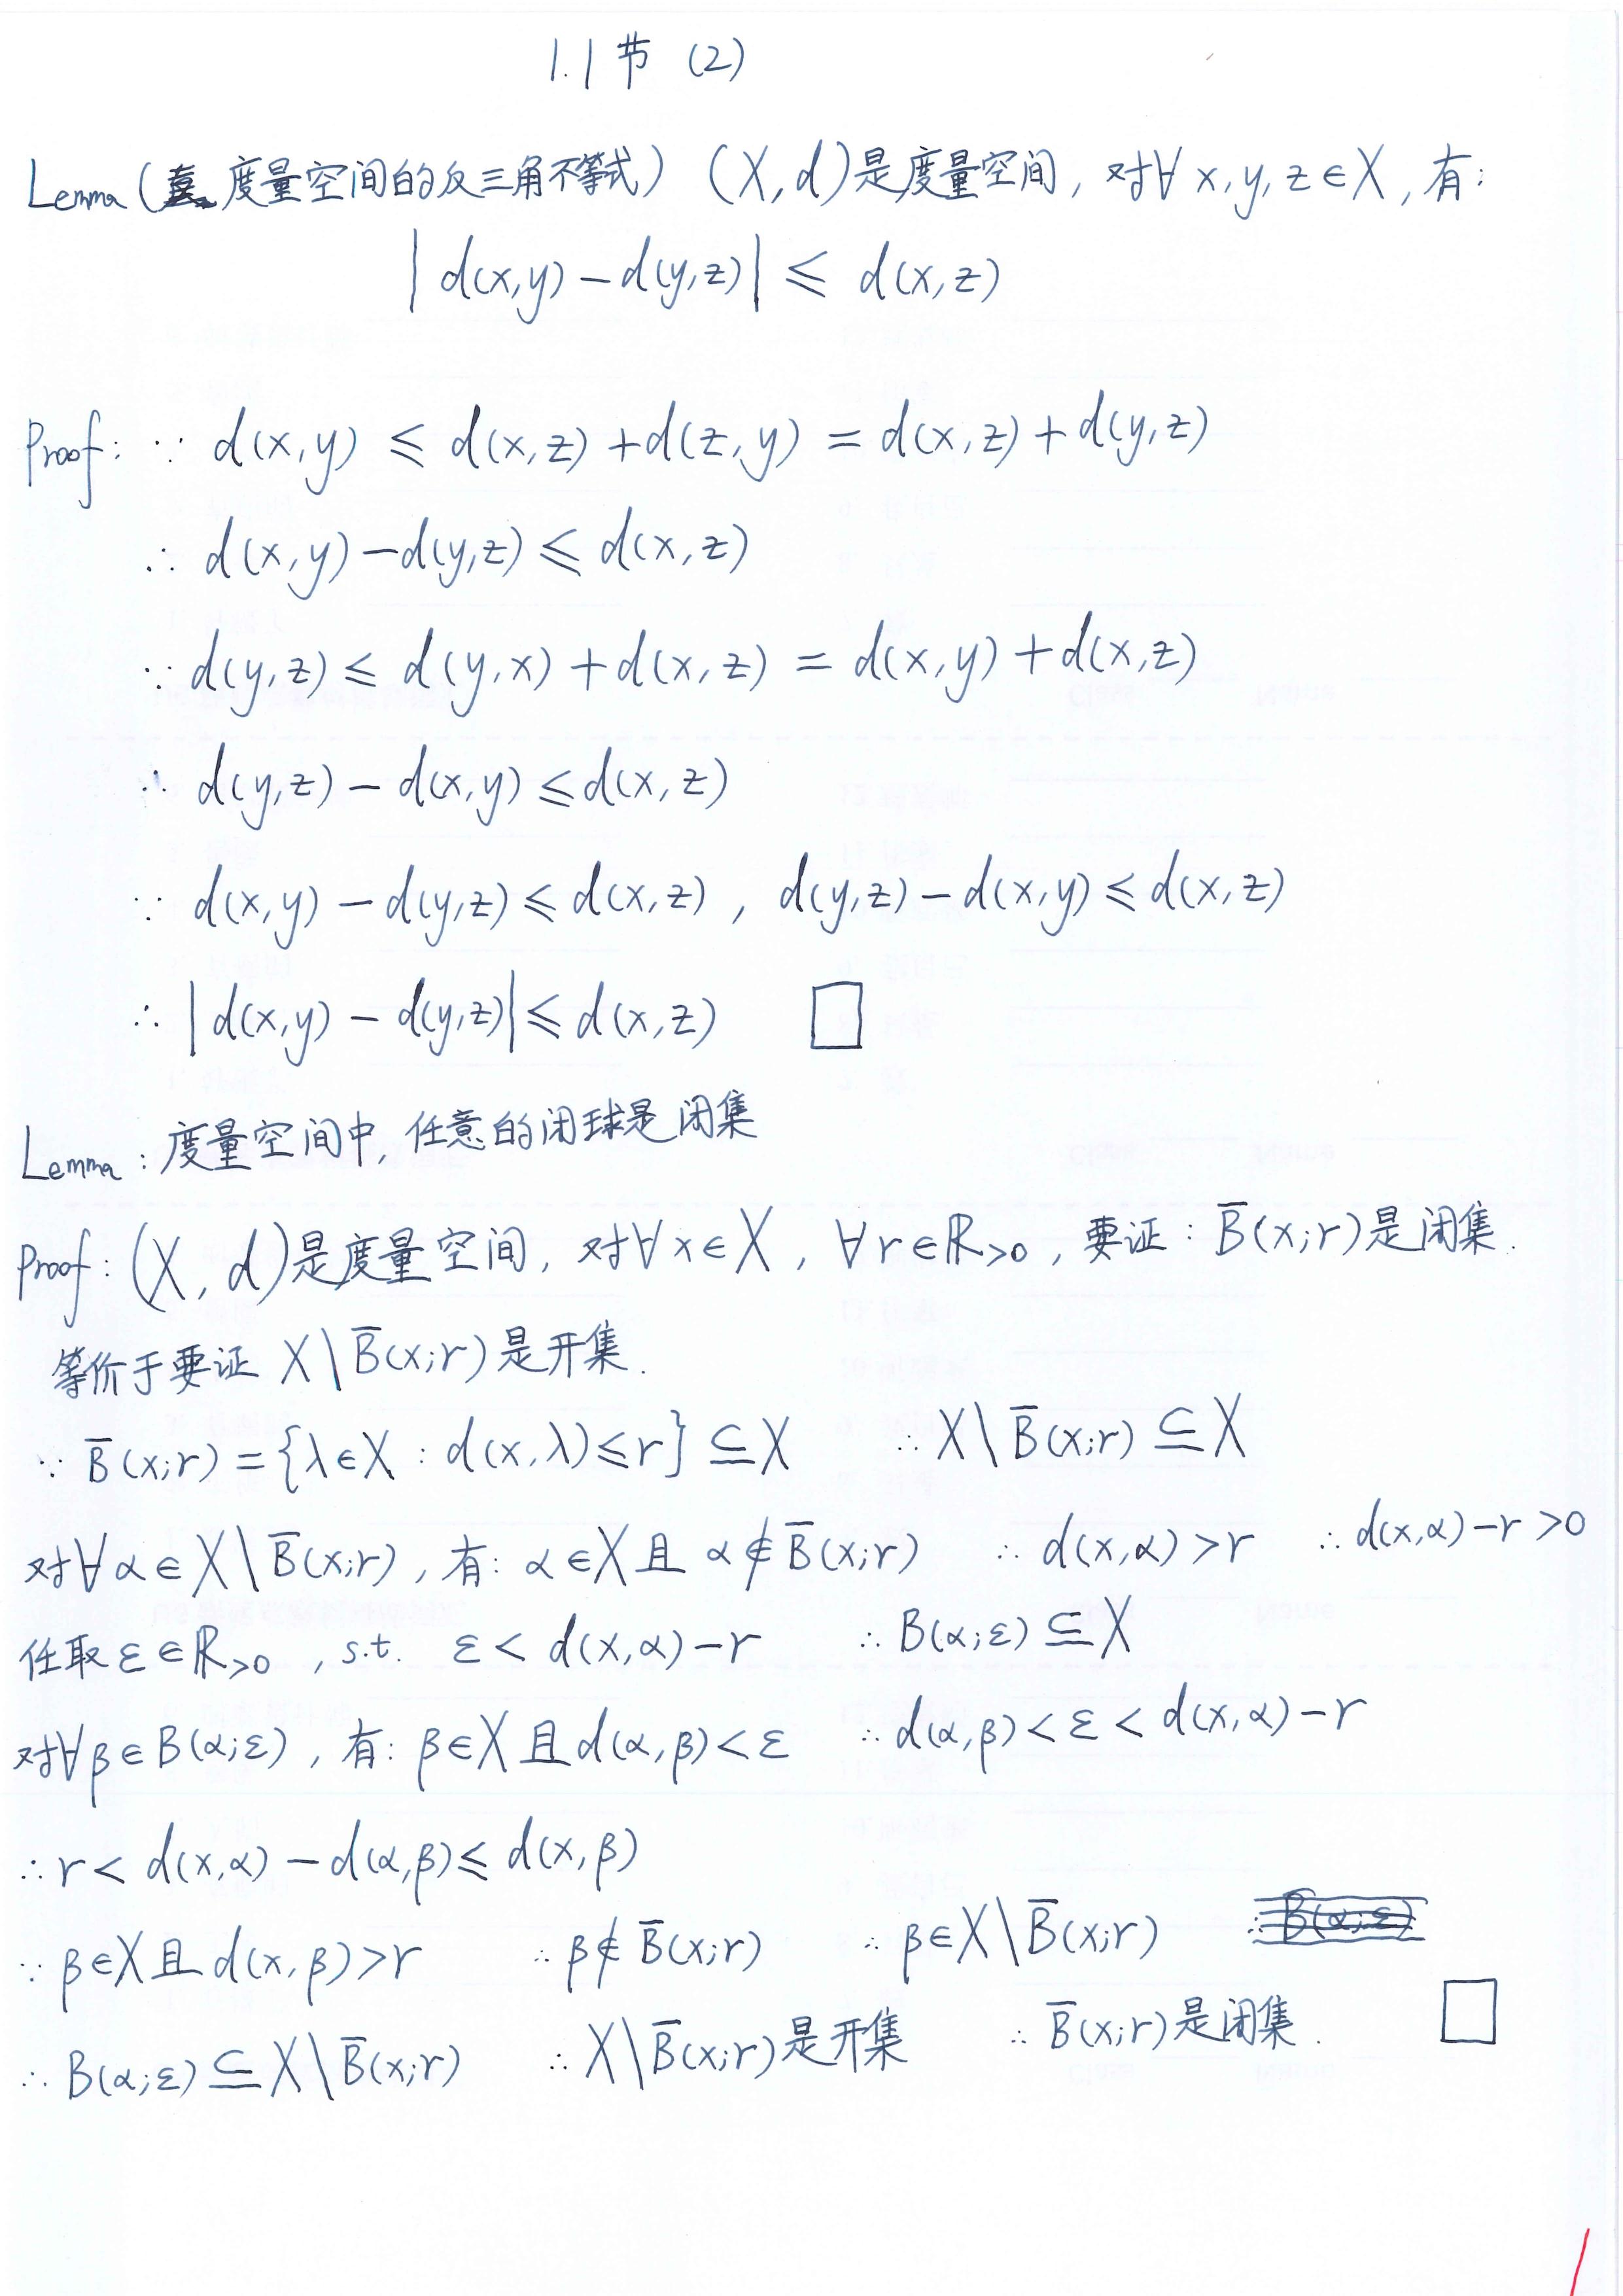 1.1节 (2)
Lemma (度量空间的反三角不等式) (X, d)是度量空间, 对∀ x, y, z ∈ X, 有:
| d(x,y) - d(y,z) | ≤ d(x,z)
Proof: ∵ d(x,y) ≤ d(x,z) + d(z,y) = d(x,z) + d(y,z)
∴ d(x,y) - d(y,z) ≤ d(x,z)
∵ d(y,z) ≤ d(y,x) + d(x,z) = d(x,y) + d(x,z)
∴ d(y,z) - d(x,y) ≤ d(x,z)
∵ d(x,y) - d(y,z) ≤ d(x,z), d(y,z) - d(x,y) ≤ d(x,z)
∴ | d(x,y) - d(y,z) | ≤ d(x,z) □
Lemma: 度量空间中, 任意的闭球是闭集
Proof: (X, d)是度量空间, 对∀ x ∈ X, ∀ r ∈ ℝ>0, 要证: B̅(x;r)是闭集.
等价于要证 X \ B̅(x;r)是开集.
∵ B̅(x;r) = {λ ∈ X : d(x,λ) ≤ r} ⊆ X ∴ X \ B̅(x;r) ⊆ X
对∀ α ∈ X \ B̅(x;r), 有: α ∈ X 且 α ∉ B̅(x;r) ∴ d(x,α) > r ∴ d(x,α) - r > 0
任取 ε ∈ ℝ>0, s.t. ε < d(x,α) - r ∴ B(α;ε) ⊆ X
对∀ β ∈ B(α;ε), 有: β ∈ X 且 d(α,β) < ε ∴ d(α,β) < ε < d(x,α) - r
∴ r < d(x,α) - d(α,β) ≤ d(x,β)
∵ β ∈ X 且 d(x,β) > r ∴ β ∉ B̅(x;r) ∴ β ∈ X \ B̅(x;r) ∴ B(α;ε)
∴ B(α;ε) ⊆ X \ B̅(x;r) ∴ X \ B̅(x;r)是开集 ∴ B̅(x;r)是闭集. □